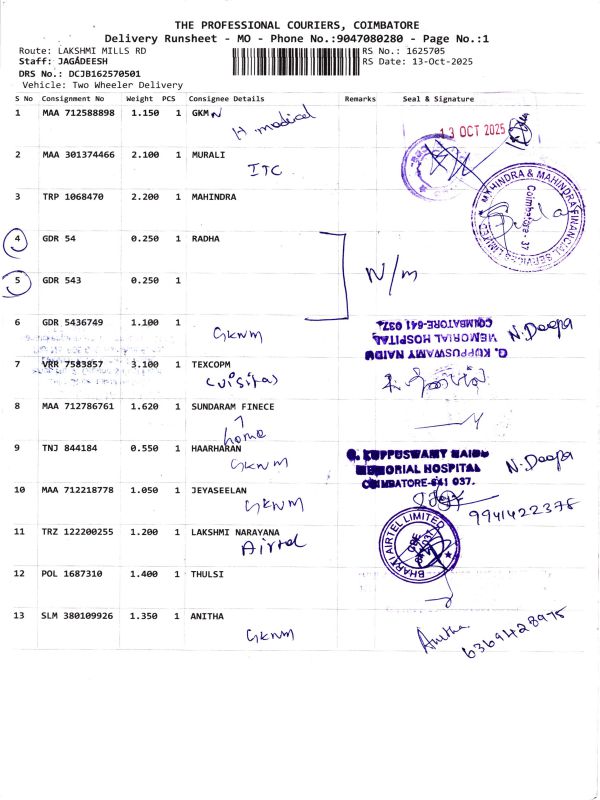 THE PROFESSIONAL COURIERS, COIMBATORE
Delivery Runsheet - MO - Phone No.:9047080280 - Page No.:1
Route: LAKSHMI MILLS RD RS No.: 1625705
Staff: JAGADEESH RS Date: 13-Oct-2025
DRS No.: DCJB162570501
Vehicle: Two Wheeler Delivery
S No Consignment No Weight PCS Consignee Details Remarks Seal & Signature
1 MAA 712588898 1.150 1 GKMN
H medical
13 OCT 2025
2 MAA 301374466 2.100 1 MURALI
ITC
3 TRP 1068470 2.200 1 MAHINDRA
MAHINDRA & MAHINDRA FINANCIAL SERVICES LIMITED
Coimbatore - 37
4 GDR 54 0.250 1 RADHA
N/m
5 GDR 543 0.250 1
6 GDR 5436749 1.100 1
GKNM
G. KUPPUSWAMY NAIDU
MEMORIAL HOSPITAL
COIMBATORE-641 037.
N. Deepa
7 VRR 7583857 3.100 1 TEXCOPM
8 MAA 712786761 1.620 1 SUNDARAM FINECE
home
9 TNJ 844184 0.550 1 HAARHARAN
GKNM
G. KUPPUSWAMY NAIDU
MEMORIAL HOSPITAL
COIMBATORE-641 037.
N. Deepa
10 MAA 712218778 1.050 1 JEYASEELAN
GKNM
9941422378
11 TRZ 122200255 1.200 1 LAKSHMI NARAYANA
Airtel
BHARTI AIRTEL LIMITED
12 POL 1687310 1.400 1 THULSI
13 SLM 380109926 1.350 1 ANITHA
GKNM
Anitha
6369428975